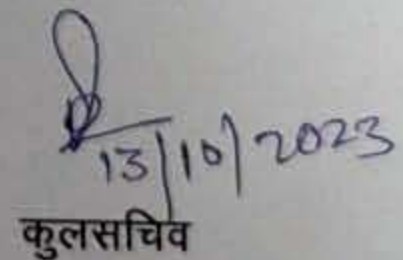 13/10/2023
कुलसचिव